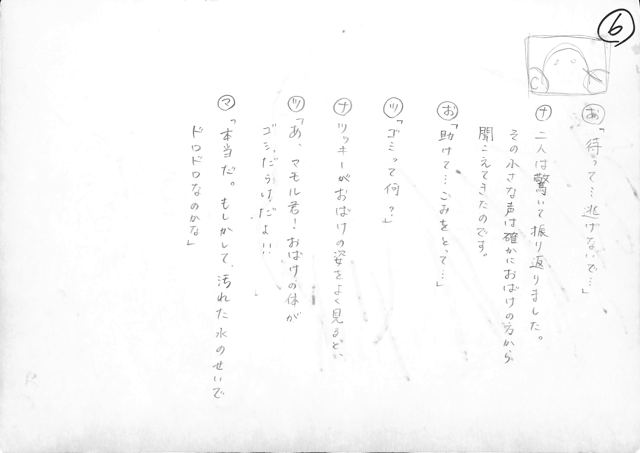 6
お「待って…逃げないで…」
ナ 二人は驚いて振り返りました。
その小さな声は確かにおばけの方から
聞こえてきたのです。
お「助けて…ごみをとって…」
ツ「ゴミって何？」
ナ ツッキーがおばけの姿をよく見ると、
ツ「あ、マモル君！おばけの体が
ゴミだらけだよ!!
マ「本当だ。もしかして、汚れた水のせいで
ドロドロなのかな」